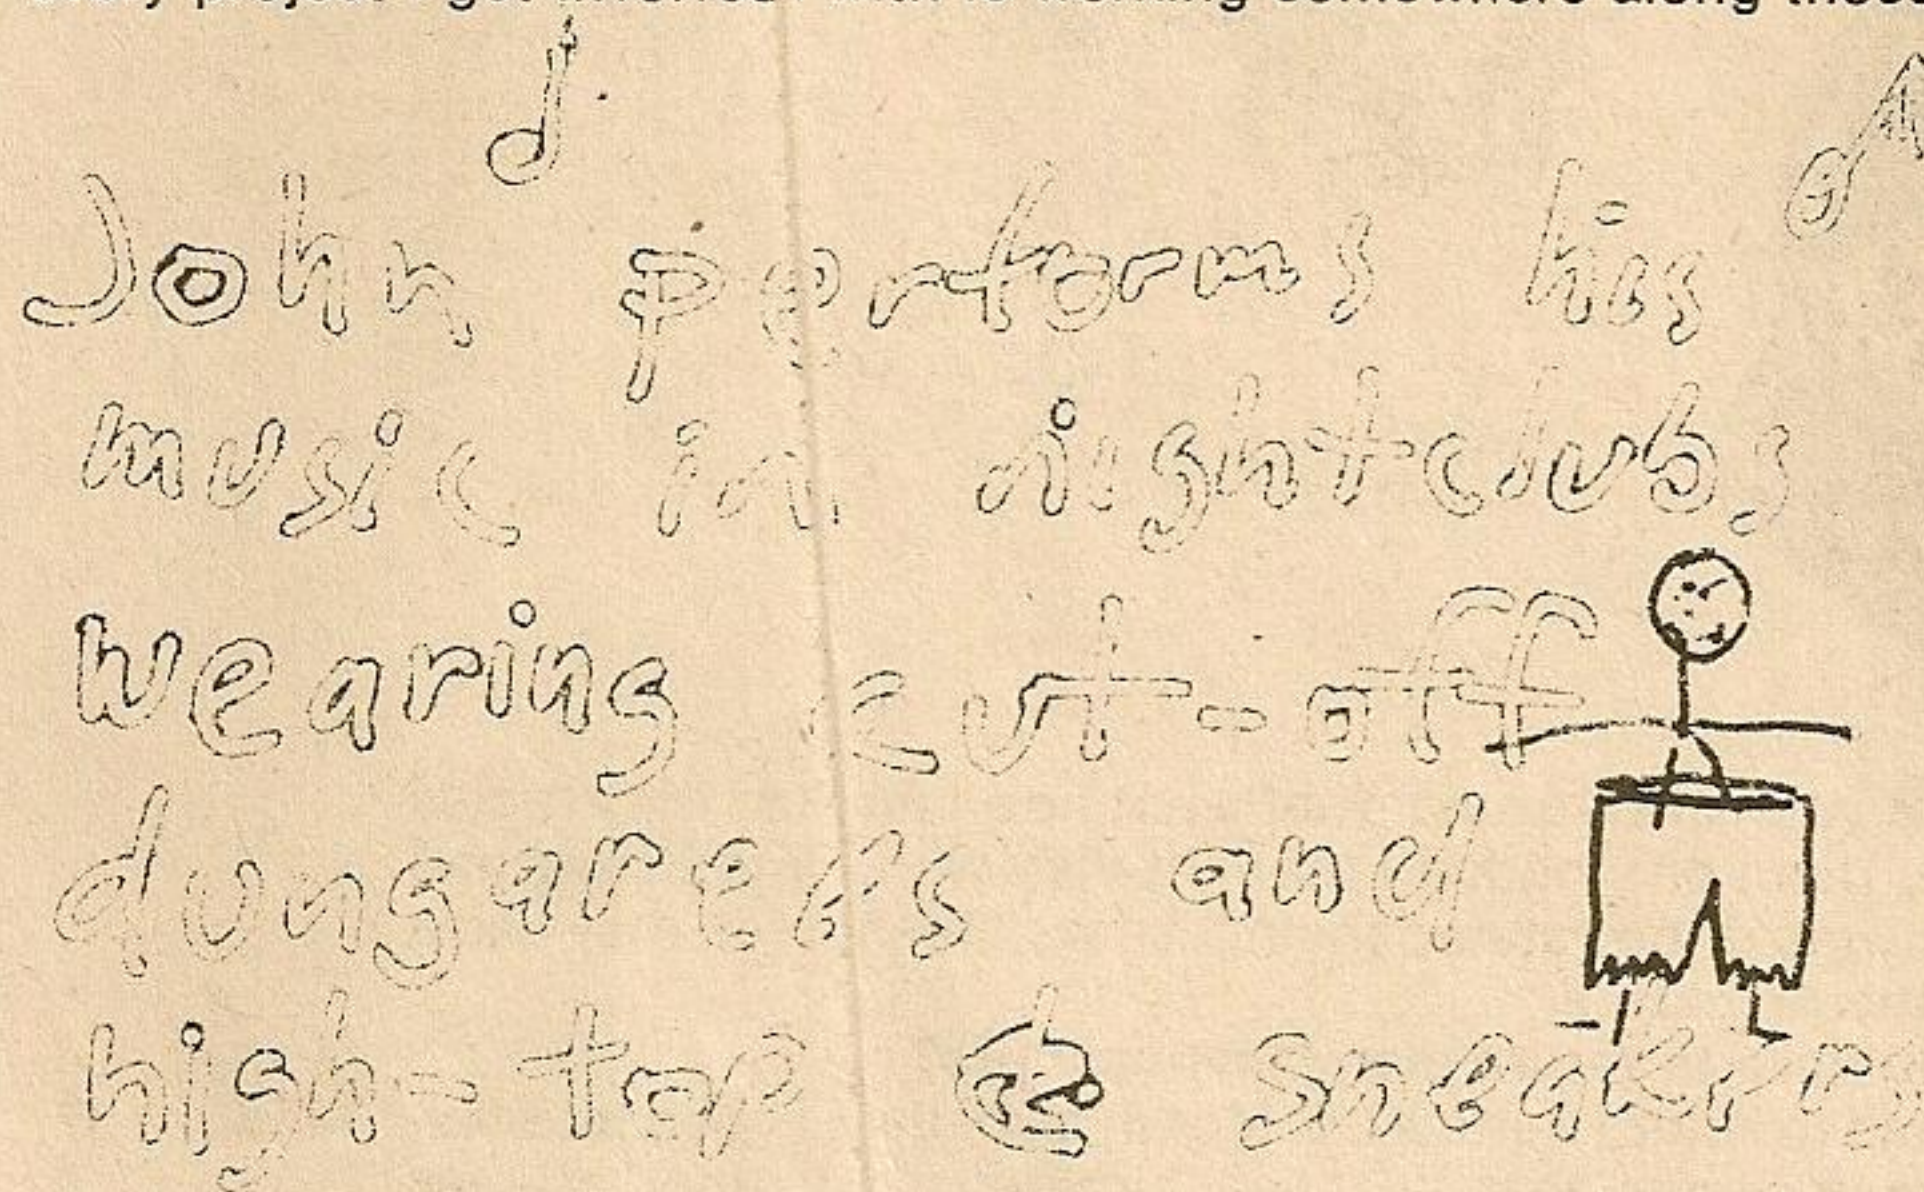 John performs his
music in nightclubs
wearing cut-off
dungarees and
high-top sneakers